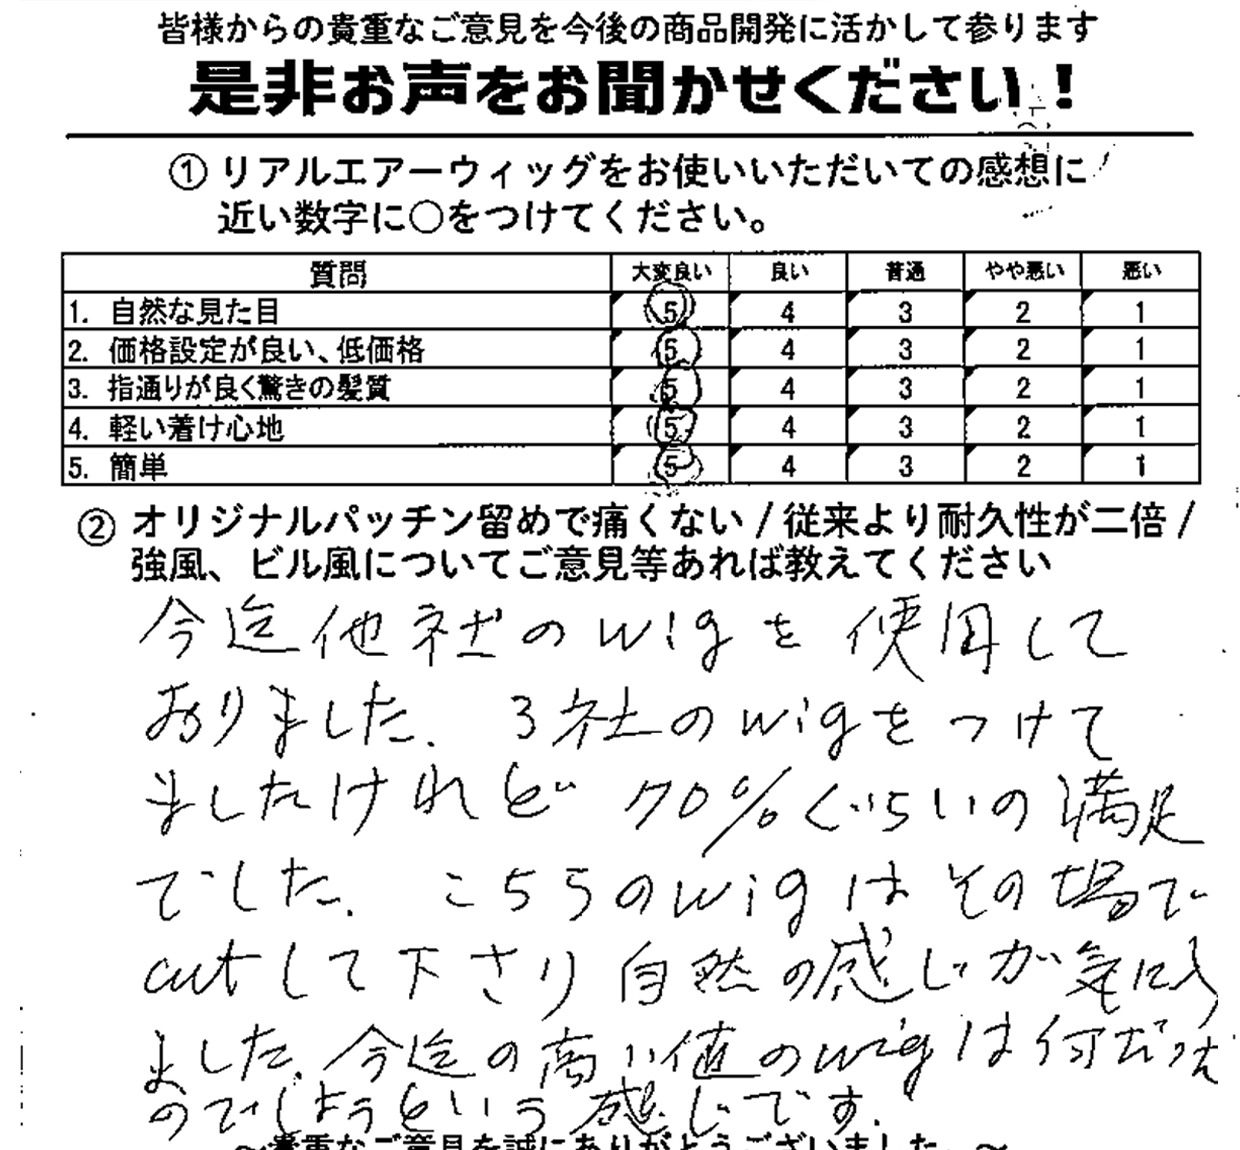 皆様からの貴重なご意見を今後の商品開発に活かして参ります
是非お声をお聞かせください！
① リアルエアーウィッグをお使いいただいての感想に
近い数字に○をつけてください。
質問 大変良い 良い 普通 やや悪い 悪い
1. 自然な見た目 5 4 3 2 1
2. 価格設定が良い、低価格 5 4 3 2 1
3. 指通りが良く驚きの髪質 5 4 3 2 1
4. 軽い着け心地 5 4 3 2 1
5. 簡単 5 4 3 2 1
② オリジナルパッチン留めで痛くない / 従来より耐久性が二倍 /
強風、ビル風についてご意見等あれば教えてください
今迄他社のwigを使用して
おりました. 3社のwigをつけて
ましたけれど 70%ぐらいの満足
でした. こちらのwigはその場で
cutして下さり自然の感じが気に入り
ました. 今迄の高い値のwigは何だった
のでしょうという感じです.
～貴重なご意見を誠にありがとうございました。～